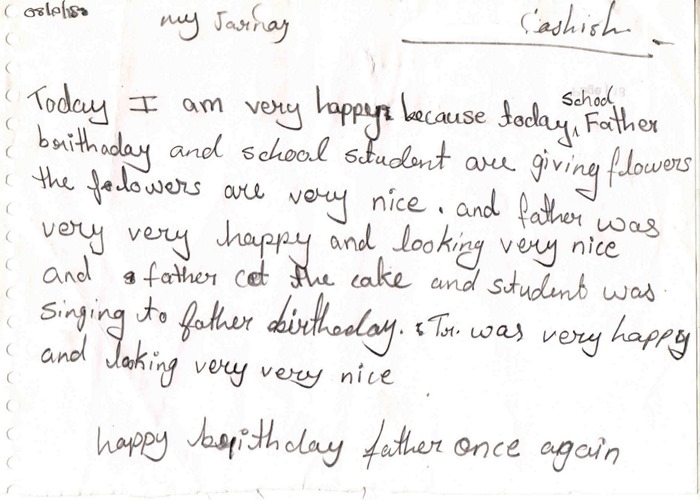 my Jarnay Cashish
school
Today I am very happy because today, Father
brithaday and school student are giving flowers
the felowers are very nice. and father was
very very happy and looking very nice
and father cet the cake and student was
singing to father birtheday. Tr. was very happy
and looking very very nice
happy brithday father once again